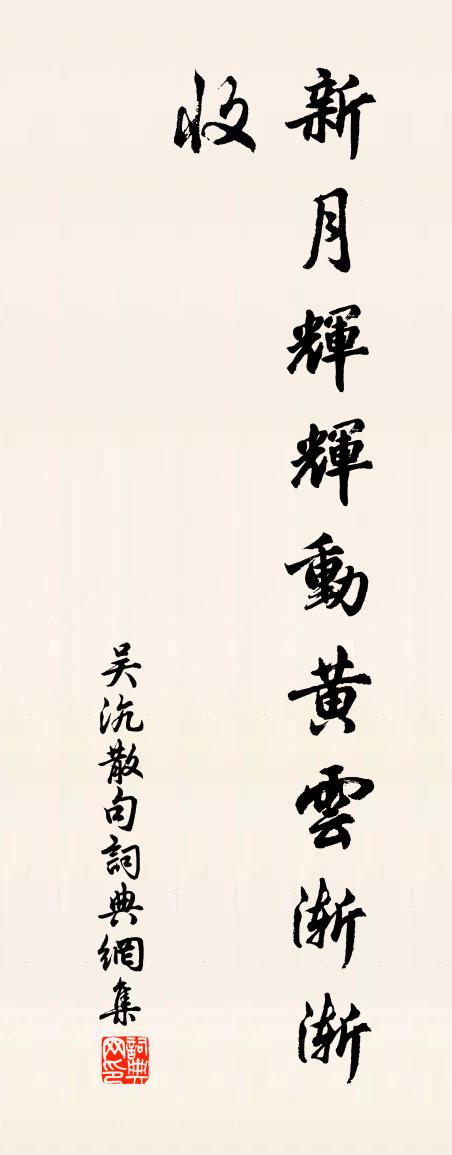 新月輝輝動黄雲漸漸
收
吴沆散句詞典網集
詞典网印